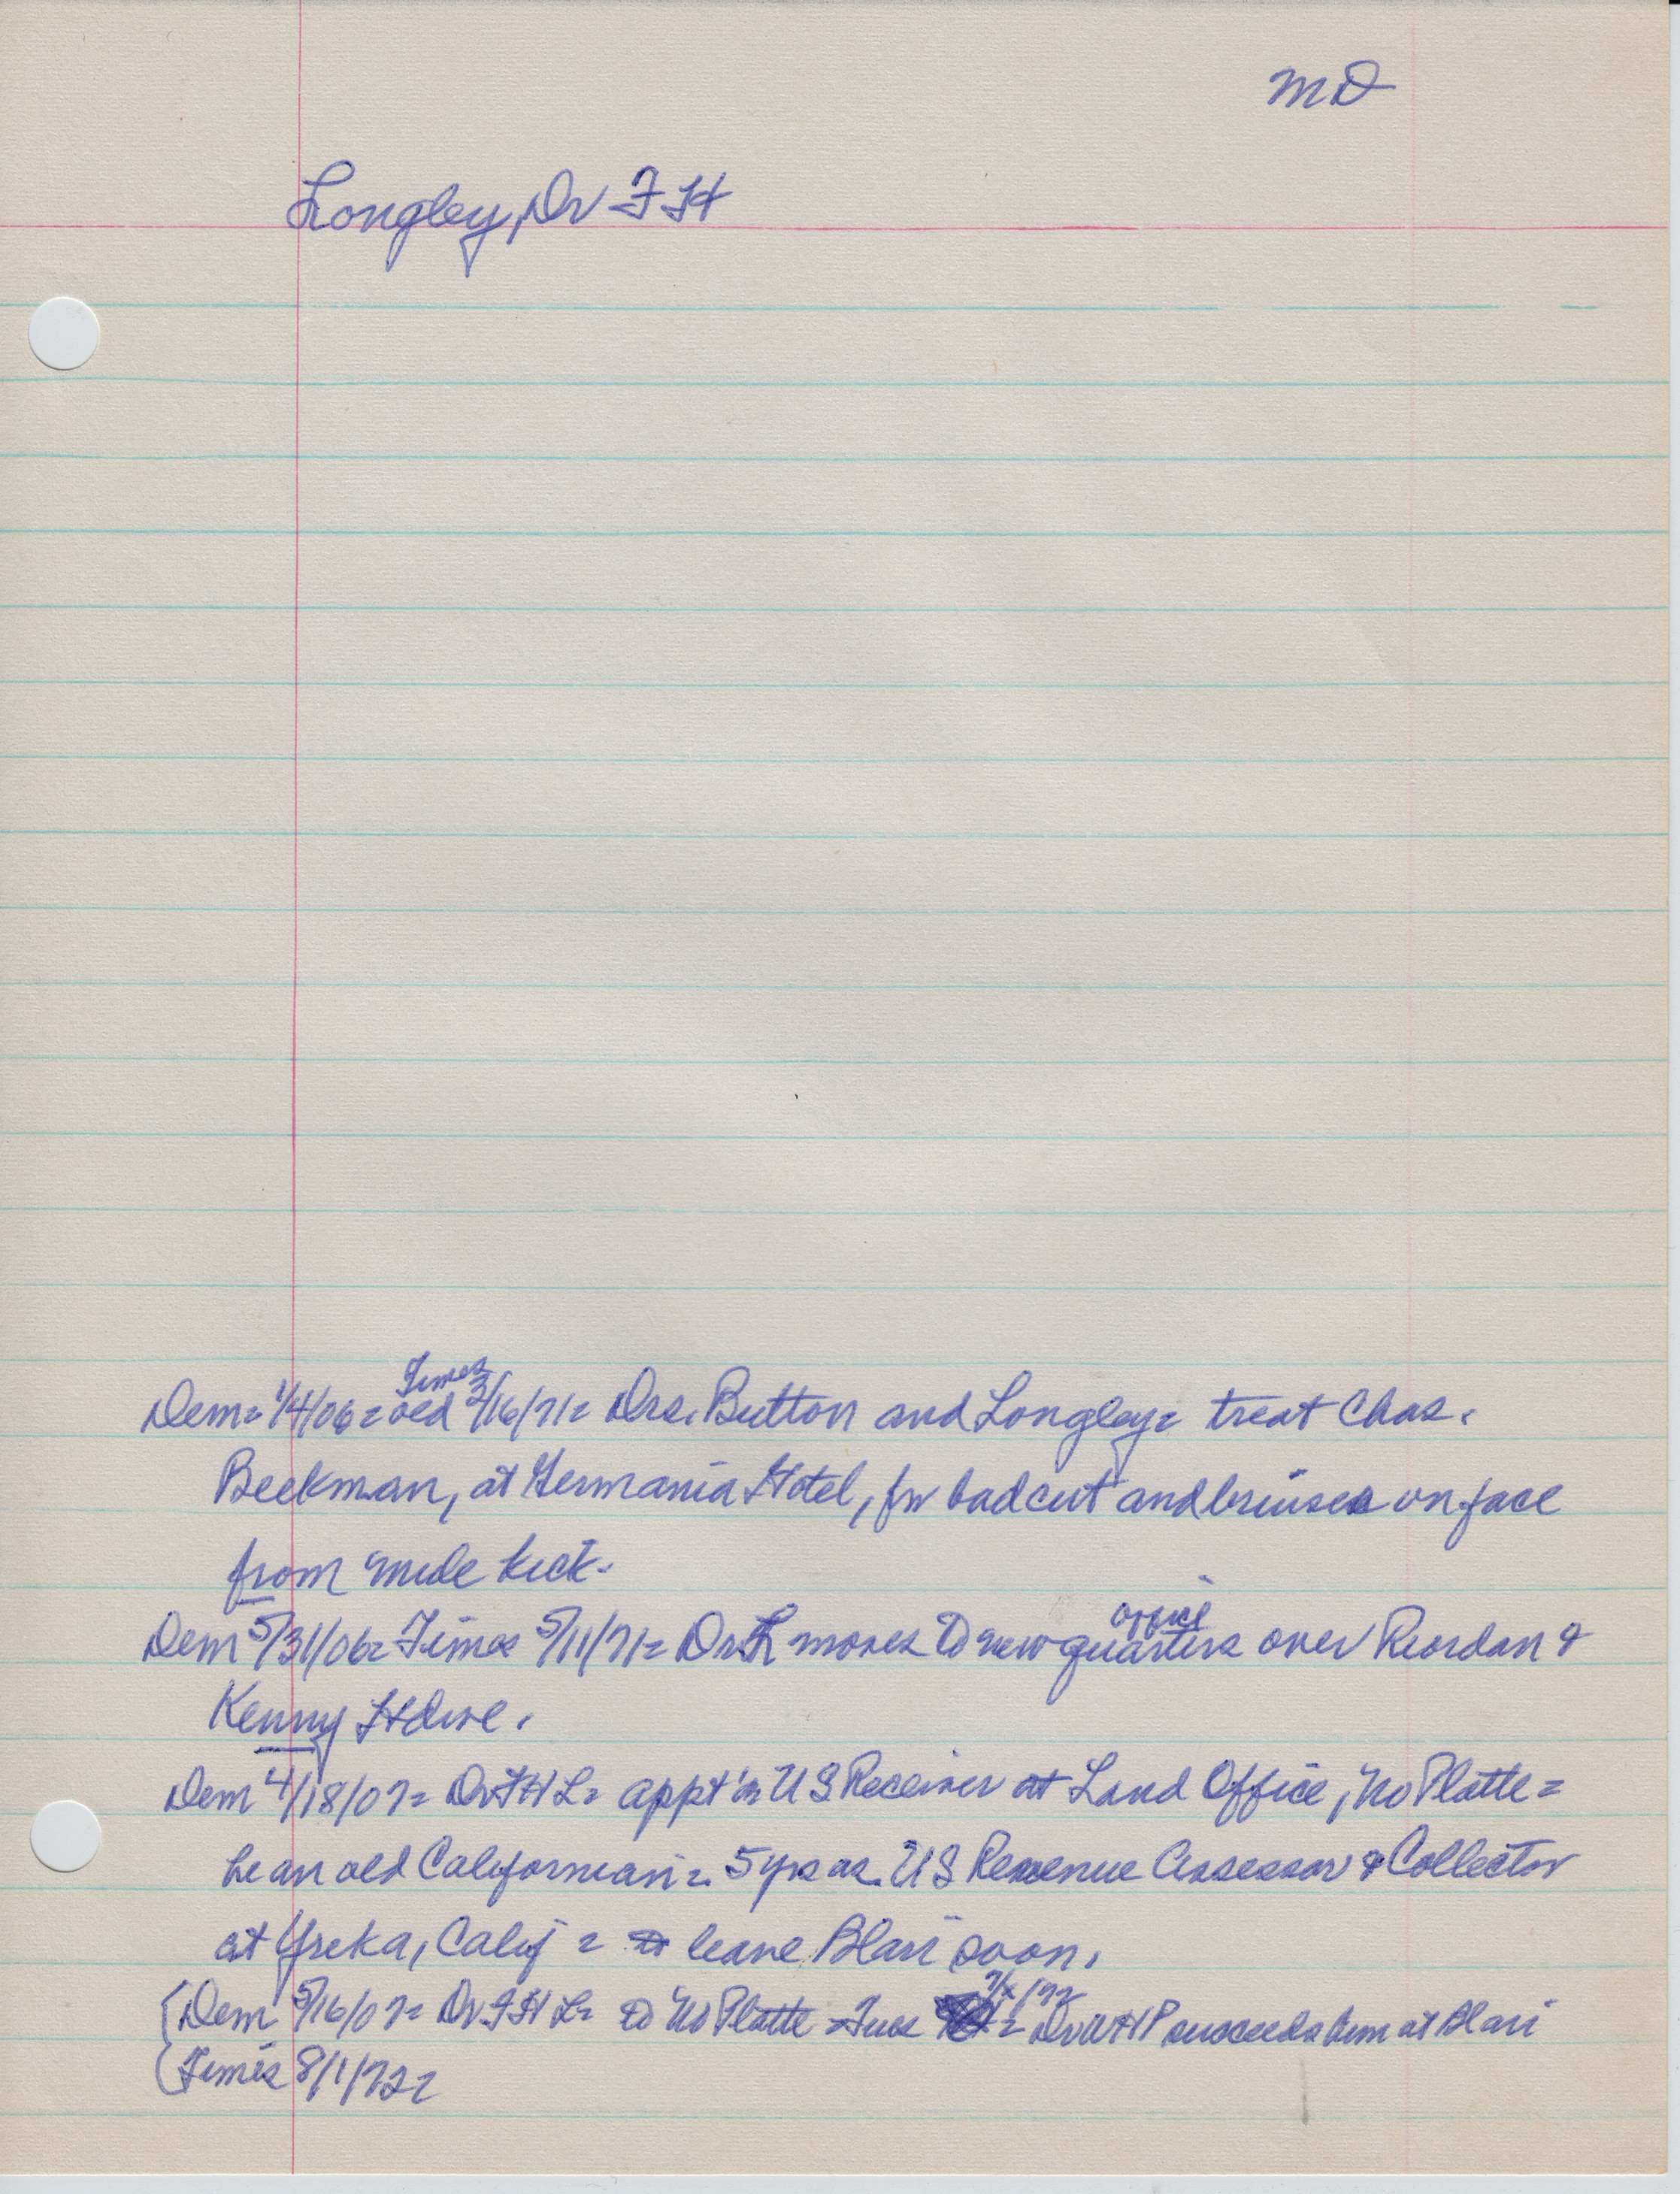 MD
Longley, Dr F H
Dem = 1/4/06 = old Times 3/16/71 = Drs. Button and Longley = treat Chas.
Beekman, at Germania Hotel, for bad cut and bruises on face
from mule kick.
Dem 5/31/06 = Times 5/11/71 = Dr L moves to new office quarters over Reordan &
Kenny Hdwe.
Dem 4/18/07 = Dr F H L = appt'm US Receiver at Land Office, No Platte =
he an old Californian = 5 yrs as US Revenue Assessor & Collector
at Yreka, Calif = leave Blair soon.
Dem 5/16/07 = Dr F H L = to No Platte = Tues = Dr W H P succeeds him at Blair
Times 8/1/72 =